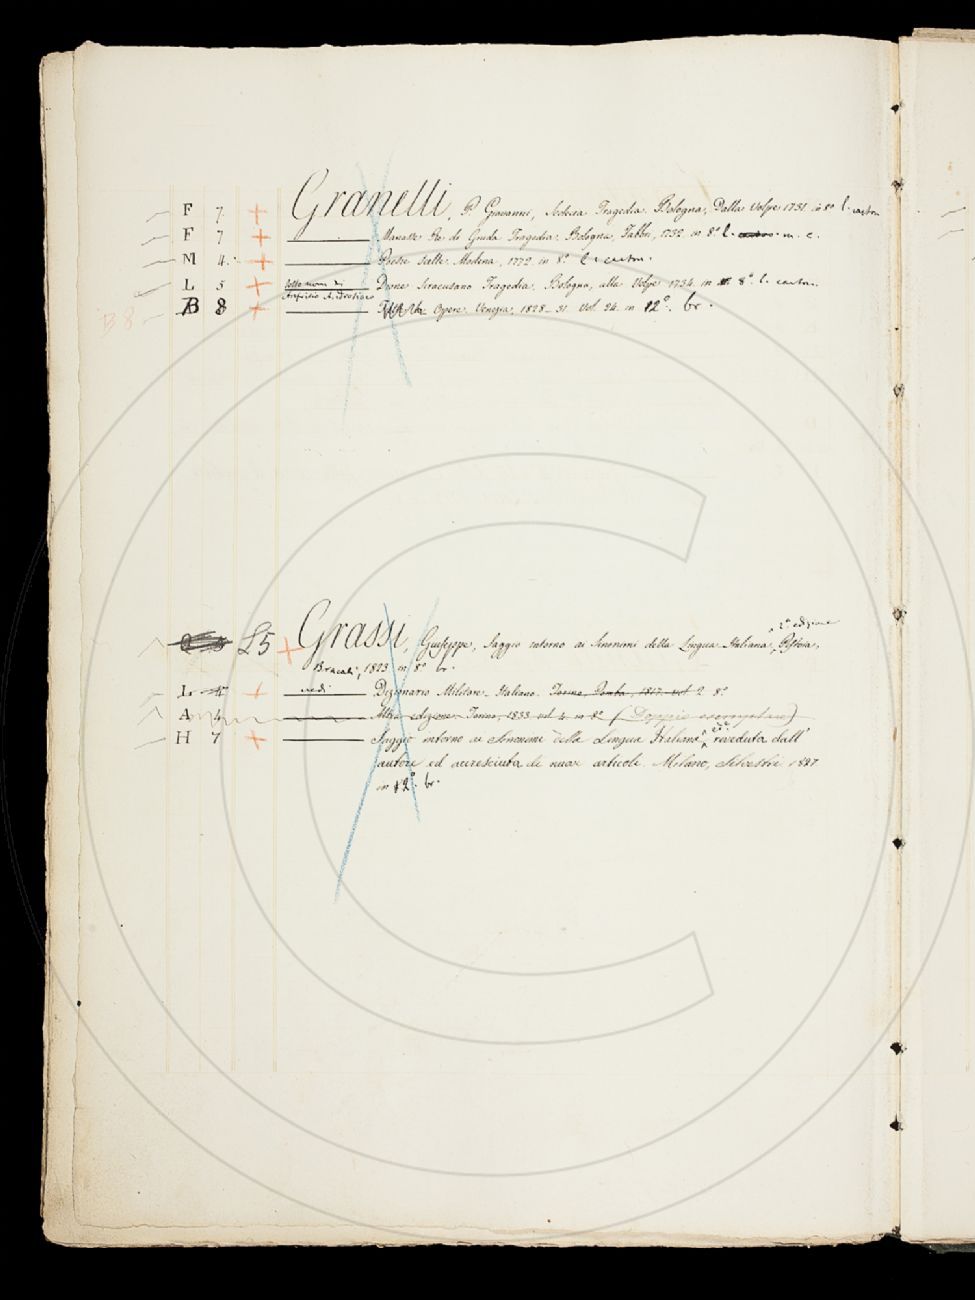 F 7 + Granelli, P. Giovanni, Sedecia Tragedia. Bologna, Dalla Volpe 1731. in 8º l. carta
F 7 + Manasse Re di Giuda Tragedia. Bologna, 1732. in 8º l. m. c.
M 4. + Poesie scelte. Modena, 1772. in 8º l. carta.
L 5 + sotto nome di Dione Siracusano Tragedia. Bologna, alla Volpe 1734. in 8º. l. carta.
B 8 B 8 + Opere. Venezia, 1828-31. Vol. 24. in 12º. br.
L5 + Grassi, Giuseppe, Saggio intorno ai Sinonimi della Lingua Italiana, 2ª edizione Pistoia,
Bracali, 1823 in 8º br.
L 4 + vedi Dizionario Militare Italiano. Torino, Pomba, 1817. vol 2 8º
A 4 Altra edizione Torino, 1833 vol. 4. in 8º (Doppio esemplare)
H 7 + Saggio intorno ai Sinonimi della Lingua Italiana riveduta dall'
autore ed accresciuta di nuovi articoli. Milano, Silvestri 1827
in 12º. br.